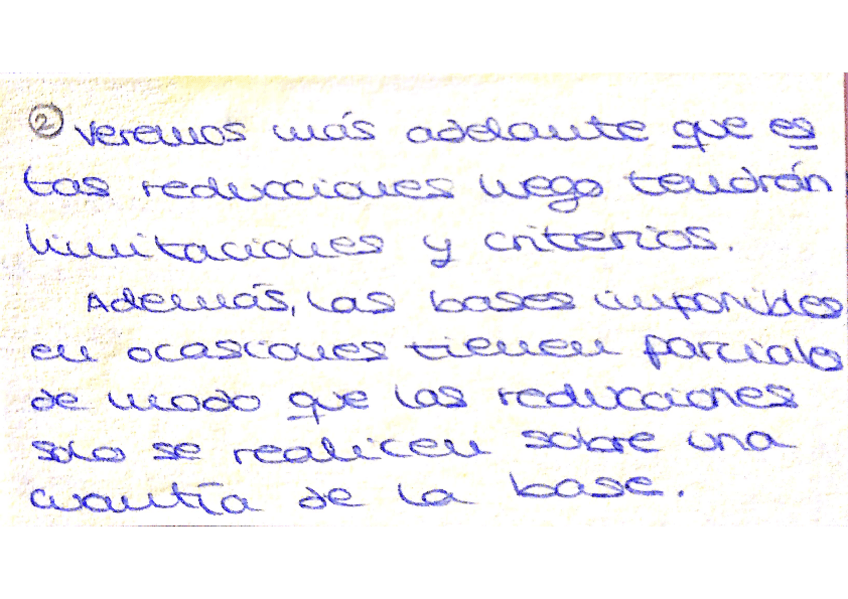 ② Veremos más adelante que es
tas reducciones luego tendrán
limitaciones y criterios.
Además, las bases imponibles
en ocasiones tienen parciales
de modo que las reducciones
solo se realicen sobre una
cuantía de la base.